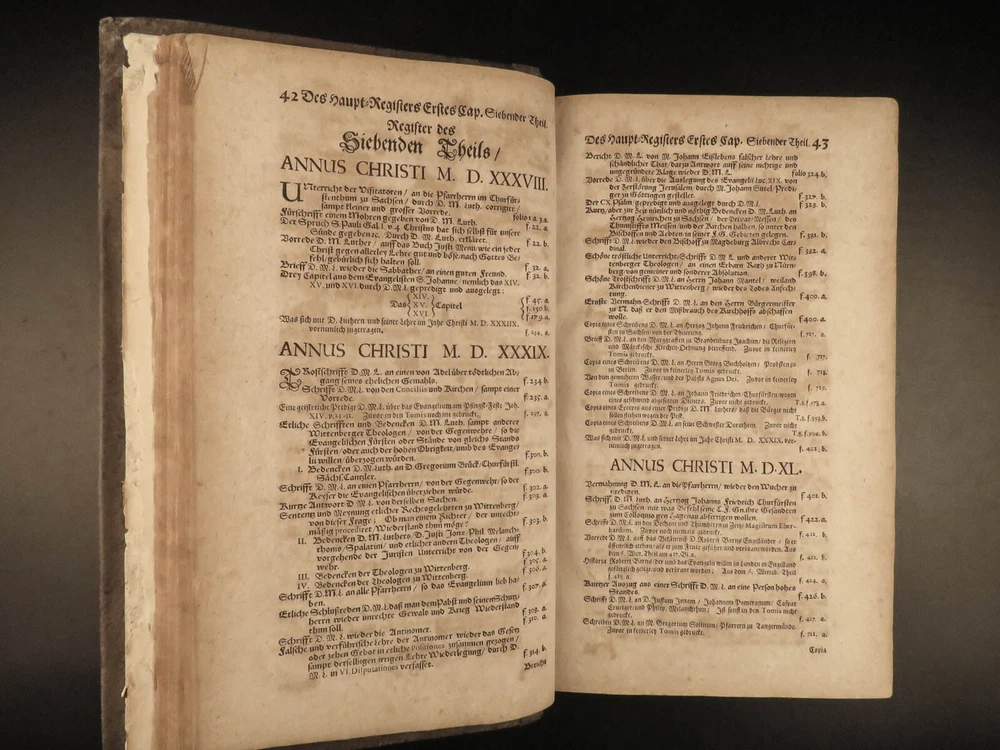 42 Des Haupt-Registers Erstes Cap. Siebender Theil.
Register des
Siebenden Theils /
ANNUS CHRISTI M. D. XXXVIII.
UNterricht der Visitatoren / an die Pfarrherrn im Churfür-
stenthum zu Sachsen / durch D. M. Luth. corrigiret /
sampt kleiner und grosser Vorrede. folio 1. a. 3. a.
Fürschrifft einem Mohren gegeben von D. M. Luth. f. 22. a.
Der Spruch S. Pauli Gal. 1. v. 4. Christus hat sich selbst für unsere
Sünde gegeben etc. Durch D. M. Luth. erkläret. f. 22. b.
Vorrede D. M. Luther / auff das Buch Justi Menii / wie ein jeder
Christ gegen allerley Lehre gut und böse / nach Gottes Be-
fehl / gebürlich sich halten soll. f. 32. a.
Brieff D. M. L. wieder die Sabbather / an einen guten Freund. f. 32. b.
Drey Capitel aus dem Evangelisten S. Johanne / nemlich das XIV.
XV. und XVI. durch D. M. L. gepredigt und ausgelegt:
XIV. f. 45. a.
Das XV. Capitel f. 130. b.
XVI. f. 179. a.
Was sich mit D. Luthern und seiner Lehre im Jahr Christi M. D. XXXIIX.
vornemlich zugetragen. f. 234. a.
ANNUS CHRISTI M. D. XXXIX.
TRostschrifft D. M. L. an einen von Adel über tödtlichen Ab-
gang seines ehelichen Gemahls. f. 234. b.
Schrifft D. M. L. von den Conciliis und Kirchen / sampt einer
Vorrede. f. 235. a.
Eine geistreiche Predigt D. M. L. über das Evangelium am Pfingst-Feste Joh.
XIV. v. 23-31. Zuvor in den Tomis noch nie gedruckt.
Etliche Schrifften und Bedencken D. M. Luth. sampt anderer
Wittenberger Theologen / von der Gegenwehre / so die
Evangelischen Fürsten oder Stände von gleichs Stands
Fürsten / oder auch der hohen Obrigkeit / umb des Evange-
lii willen / überzogen würden. f. 300. b.
I. Bedencken D. M. Luth. an D. Gregorium Brück / Churfürstl.
Sächs. Cantzler. f. 300. b.
Schrifft D. M. L. an einen Pfarrherrn / von der Gegenwehr / so der
Keyser die Evangelischen überziehen würde. f. 302. a.
Kurtze Antwort D. M. L. von derselben Sachen. f. 303. a.
Sententz und Meynung etlicher Rechtsgelehrten zu Wittenberg /
von dieser Frage; Ob man einem Richter / der unrecht-
mäßig procediret / Wiederstand thun möge? f. 303. b.
II. Bedencken D. M. Luthers / D. Justi Jonä / Phil. Melanch-
thons / Spalatini / und etlicher andern Theologen / auff
vorgehende der Juristen Unterricht von der Gegen-
wehr. f. 304. b.
III. Bedencken der Theologen zu Wittenberg. f. 305. a.
IV. Bedencken der Theologen zu Wittenberg. f. 306. a.
Schrifft D. M. L. an alle Pfarrherrn / so das Evangelium lieb ha-
ben. f. 307. a.
Etliche Schlußreden D. M. L. daß man dem Pabst und seinen Schutz-
herrn wieder unrechte Gewalt und Krieg Wiederstand
thun soll. f. 308. a.
Schrifft D. M. L. wieder die Antinomer. f. 310. a.
Falsche und verführische Lehre der Antinomer wieder das Gesetz
oder zehen Gebot in etliche Positiones zusammen gezogen /
sampt derselbigen irrigen Lehre Wiederlegung / durch D.
M. L. in VI. Disputationes verfasset. f. 314. b.
Bericht
Des Haupt-Registers Erstes Cap. Siebender Theil. 43
Bericht D. M. L. von M. Johann Eißlebens falscher Lehre und
schändlicher That / darzu Antwort auff seine nichtige und
ungegründete Klage wieder D. M. L. folio 324. b.
Vorrede D. M. L. über die Auslegung des Evangelii Luc. XIX. von
der Zerstörung Jerusalem / durch M. Johann Sutel / Predi-
ger zu Göttingen gestellet. f. 327. b.
Der CX. Psalm / gepredigt und ausgelegt durch D. M. L. f. 328. b.
Kurtz / aber zur Zeit nützlich und nöthig Bedencken D. M. Luth. an
Hertzog Heinrichen zu Sachsen / der Privat-Messen / des
Thumstiffts Meissen / und der Kirchen halben / so unter den
Bischoffen und Aebten in seiner F. G. Gebieten gelegen. f. 381. b.
Schrifft D. M. L. wieder den Bischoff zu Magdeburg Albrecht Car-
dinal. f. 382. a.
Schöne tröstliche Unterricht-Schrifft D. M. L. und anderer Wit-
tenberger Theologen / an einen Erbarn Rath zu Nürn-
berg / von gemeiner und sonderer Absolution. f. 398. b.
Schöne Trostschrifft D. M. L. an Herrn Johann Mantel / weiland
Kirchendiener zu Wittenberg / wieder des Todes Anfech-
tung. f. 400. a.
Ernste Vermahn-Schrifft D. M. L. an den Herrn Bürgermeister
zu N. daß er den Mißbrauch des Kirchhoffs abschaffen
wolle. f. 400. a.
Copia eines Schreibens D. M. L. an Hertzog Johann Friedrichen / Churfür-
sten zu Sachsen / von der Theurung.
Brieff D. M. L. an den Marggraffen zu Brandenburg Joachim / die Religion
und Märckische Kirchen-Ordnung betreffend. Zuvor in keinerley
Tomis gedruckt.
Copia eines Schreibens D. M. L. an Herrn Georg Buchholtzer / Probsten zu
zu Berlin. Zuvor in keinerley Tomis gedruckt.
Von dem geweiheten Wasser / und des Pabsts Agnus Dei. Zuvor in keinerley
Tomis gedruckt.
Copia eines Schreibens D. M. L. an Johann Friedrichen / Churfürsten wegen
eines geschwind abgesetzten Dieners. Zuvor nicht gedruckt.
Copia eines Extracts aus einer Predigt D. M. Luthers / daß die Bürger nicht
sollen fliehen wegen der Pest.
Copia eines Schreibens D. M. L. an seine Schwester Dorotheen. Zuvor nicht
gedruckt.
Was sich mit D. M. L. und seiner Lehre im Jahr Christi M. D. XXXIX. vor-
nemlich zugetragen.
ANNUS CHRISTI M. D. XL.
Vermahnung D. M. L. an die Pfarrherrn / wieder den Wucher zu
predigen. f. 401. b.
Schrifft D. M. Luth. an Hertzog Johanns Friedrich Churfürsten
zu Sachsen / mit was Befehl seine C. F. Gn. ihre Gesandten
zum Colloquio gen Hagenau abfertigen wollen. f. 422. a.
Schrifft D. M. L. an den Dechant und Thumherrn zu Zeitz / Magistrum Eber-
hardum. Zuvor noch niemals gedruckt.
Vorrede D. M. L. auff das Bekäntniß D. Robert Barns Engelländer / so er
öffentlich gethan / als er zum Feuer geführet und verbrant worden. Aus
dem 6. Witt. Theil
Historia Robert Barns / der umb des Evangelii willen in Lunden in Engelland
gefänglich gelegt / und verbrant worden: Aus dem 6. Wittenb. Theil
Kurtzer Auszug aus einer Schrifft D. M. L. an eine Person hohes
Standes. f. 426. b.
Schrifft D. M. L. an D. Justum Jonam / Johannem Pomeranum / Caspar
Cruciger / und Philip. Melanchthon: Ist sonst in den Tomis nicht
gedruckt.
Schreiben D. M. L. an M. Gregorium Solinum / Pfarrern zu Tangermünde.
Zuvor in keinerley Tomis gedruckt.
Copia